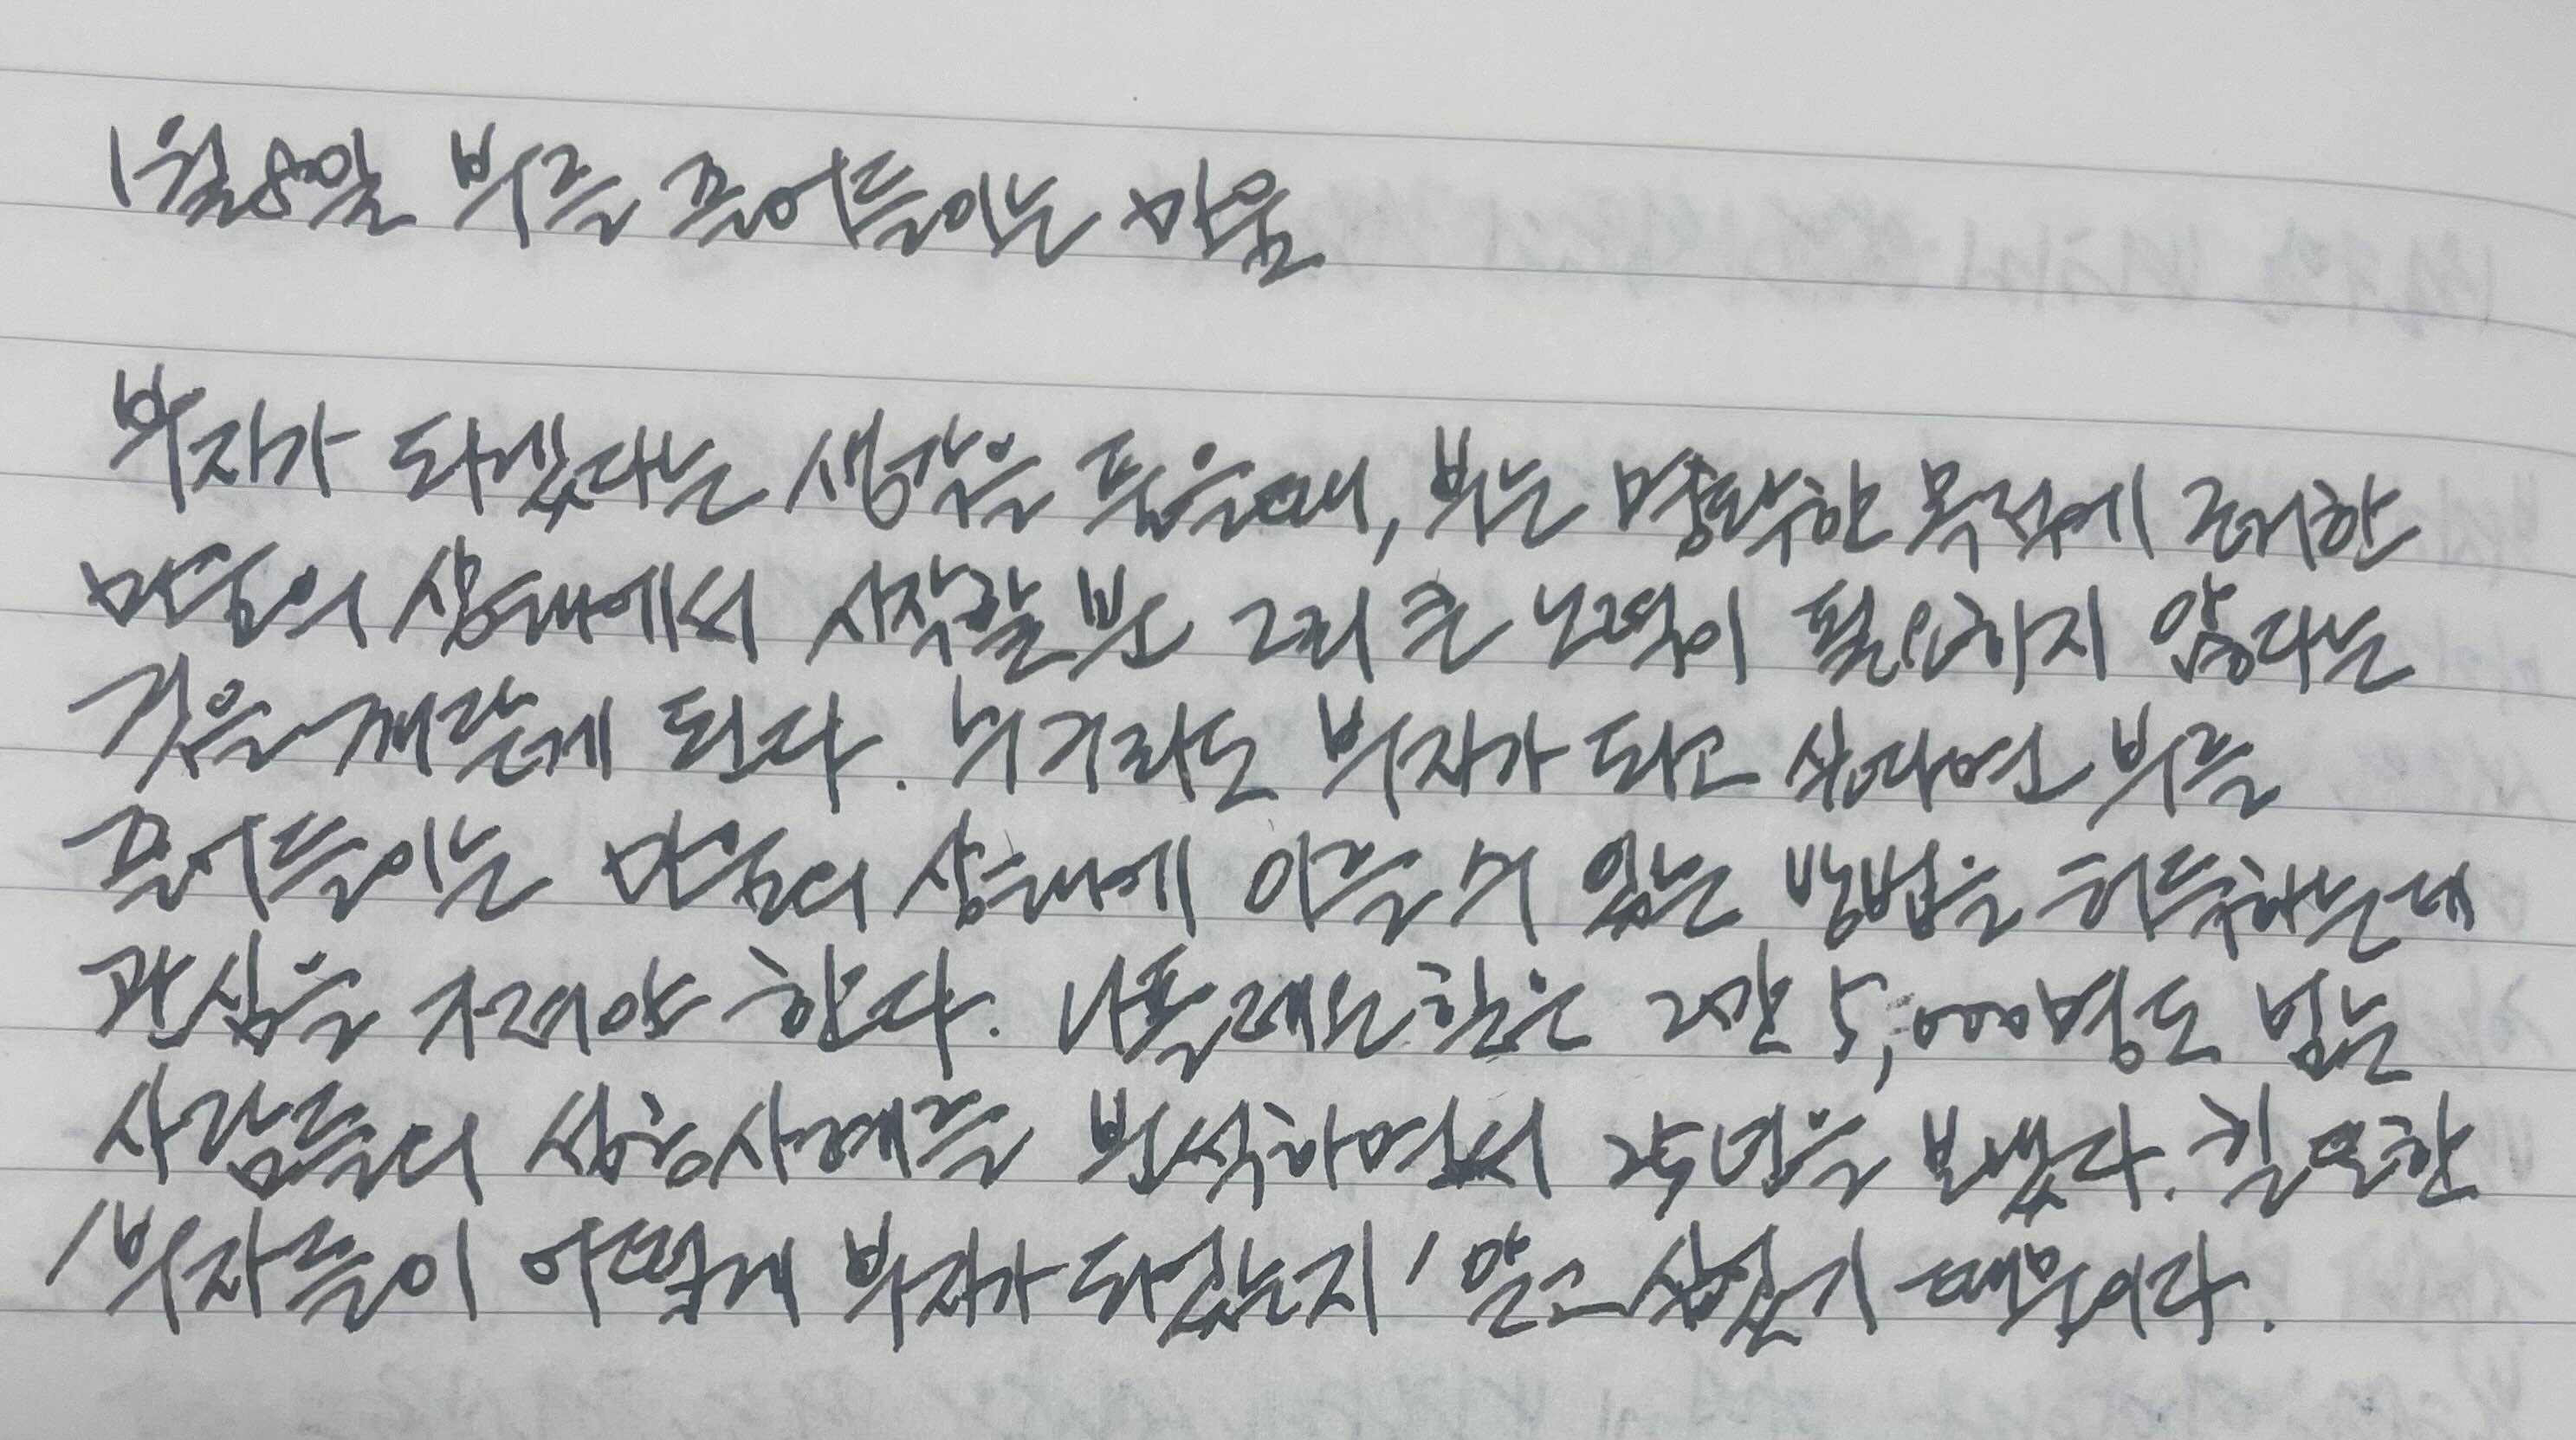 1월8일 부를 끌어들이는 마음
부자가 되겠다는 생각을 품을때, 부는 명확한 목적에 근거한
마음의 상태에서 시작할뿐 그리 큰 노력이 필요하지 않다는
것을 깨닫게 된다. 누구라도 부자가 되고 싶다면 부를
끌어들이는 마음의 상태에 이를 수 있는 방법을 터득하는데
관심을 가져야 한다. 나폴레온힐은 2만 5,000명도 넘는
사람들의 성공사례를 분석하면서 25년을 보냈다. 그 또한
'부자들이 어떻게 부자가 되었는지' 알고 싶었기 때문이다.